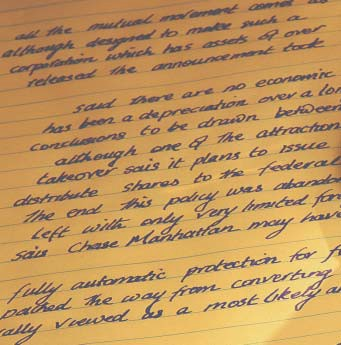 all the mutual movement comes as
although designed to make such a
corporation which has assets of over
released the announcement took
said there are no economic
has been a depreciation over a lon
conclusions to be drawn between
although one of the attraction
takeover sais it plans to issue
distribute shares to the federal
The end this policy was abandon
left with only very limited for
sais Chase Manhattan may have
fully automatic protection for f
paved the way from converting
ally viewed as a most likely a